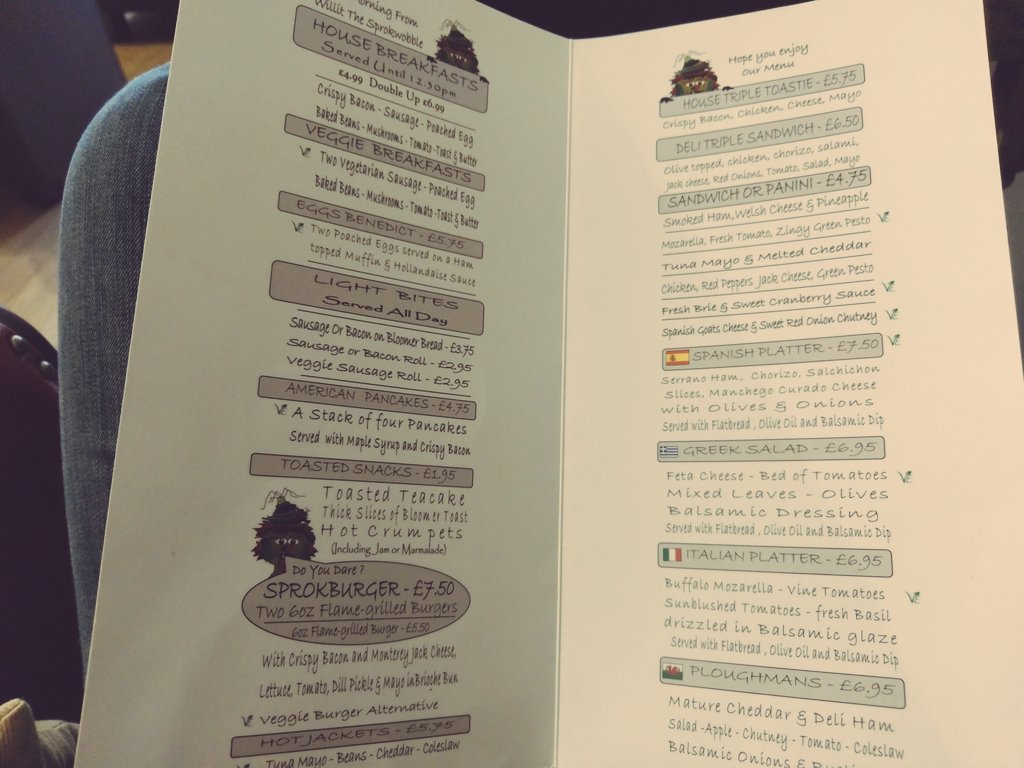 orning From
Willit The Sprokwobble
HOUSE BREAKFASTS
Served Until 12.30pm
£4.99 Double Up £6.99
Crispy Bacon - Sausage - Poached Egg
Baked Beans - Mushrooms - Tomato - Toast & Butter
VEGGIE BREAKFASTS
Two Vegetarian Sausage - Poached Egg
Baked Beans - Mushrooms - Tomato - Toast & Butter
EGGS BENEDICT - £5.75
Two Poached Eggs served on a Ham
topped Muffin & Hollandaise Sauce
LIGHT BITES
Served All Day
Sausage Or Bacon on Bloomer Bread - £3.75
Sausage or Bacon Roll - £2.95
Veggie Sausage Roll - £2.95
AMERICAN PANCAKES - £4.75
A Stack of four Pancakes
Served with Maple Syrup and Crispy Bacon
TOASTED SNACKS - £1.95
Toasted Teacake
Thick Slices of Bloomer Toast
Hot Crumpets
(Including Jam or Marmalade)
Do You Dare?
SPROKBURGER - £7.50
Two 6oz Flame-grilled Burgers
6oz Flame-grilled Burger - £5.50
With Crispy Bacon and Monterey Jack Cheese,
Lettuce, Tomato, Dill Pickle & Mayo in Brioche Bun
Veggie Burger Alternative
HOT JACKETS - £5.75
Tuna Mayo - Beans - Cheddar - Coleslaw
Hope you enjoy
Our Menu
HOUSE TRIPLE TOASTIE - £5.75
Crispy Bacon, Chicken, Cheese, Mayo
DELI TRIPLE SANDWICH - £6.50
Olive topped, chicken, chorizo, salami,
Jack cheese, Red Onions, Tomato, Salad, Mayo
SANDWICH OR PANINI - £4.75
Smoked Ham, Welsh Cheese & Pineapple
Mozarella, Fresh Tomato, Zingy Green Pesto
Tuna Mayo & Melted Cheddar
Chicken, Red Peppers Jack Cheese, Green Pesto
Fresh Brie & Sweet Cranberry Sauce
Spanish Goats Cheese & Sweet Red Onion Chutney
SPANISH PLATTER - £7.50
Serrano Ham, Chorizo, Salchichon
Slices, Manchego Curado Cheese
with Olives & Onions
Served with Flatbread, Olive Oil and Balsamic Dip
GREEK SALAD - £6.95
Feta Cheese - Bed of Tomatoes
Mixed Leaves - Olives
Balsamic Dressing
Served with Flatbread, Olive Oil and Balsamic Dip
ITALIAN PLATTER - £6.95
Buffalo Mozarella - Vine Tomatoes
Sunblushed Tomatoes - fresh Basil
drizzled in Balsamic glaze
Served with Flatbread, Olive Oil and Balsamic Dip
PLOUGHMANS - £6.95
Mature Cheddar & Deli Ham
Salad - Apple - Chutney - Tomato - Coleslaw
Balsamic Onions &